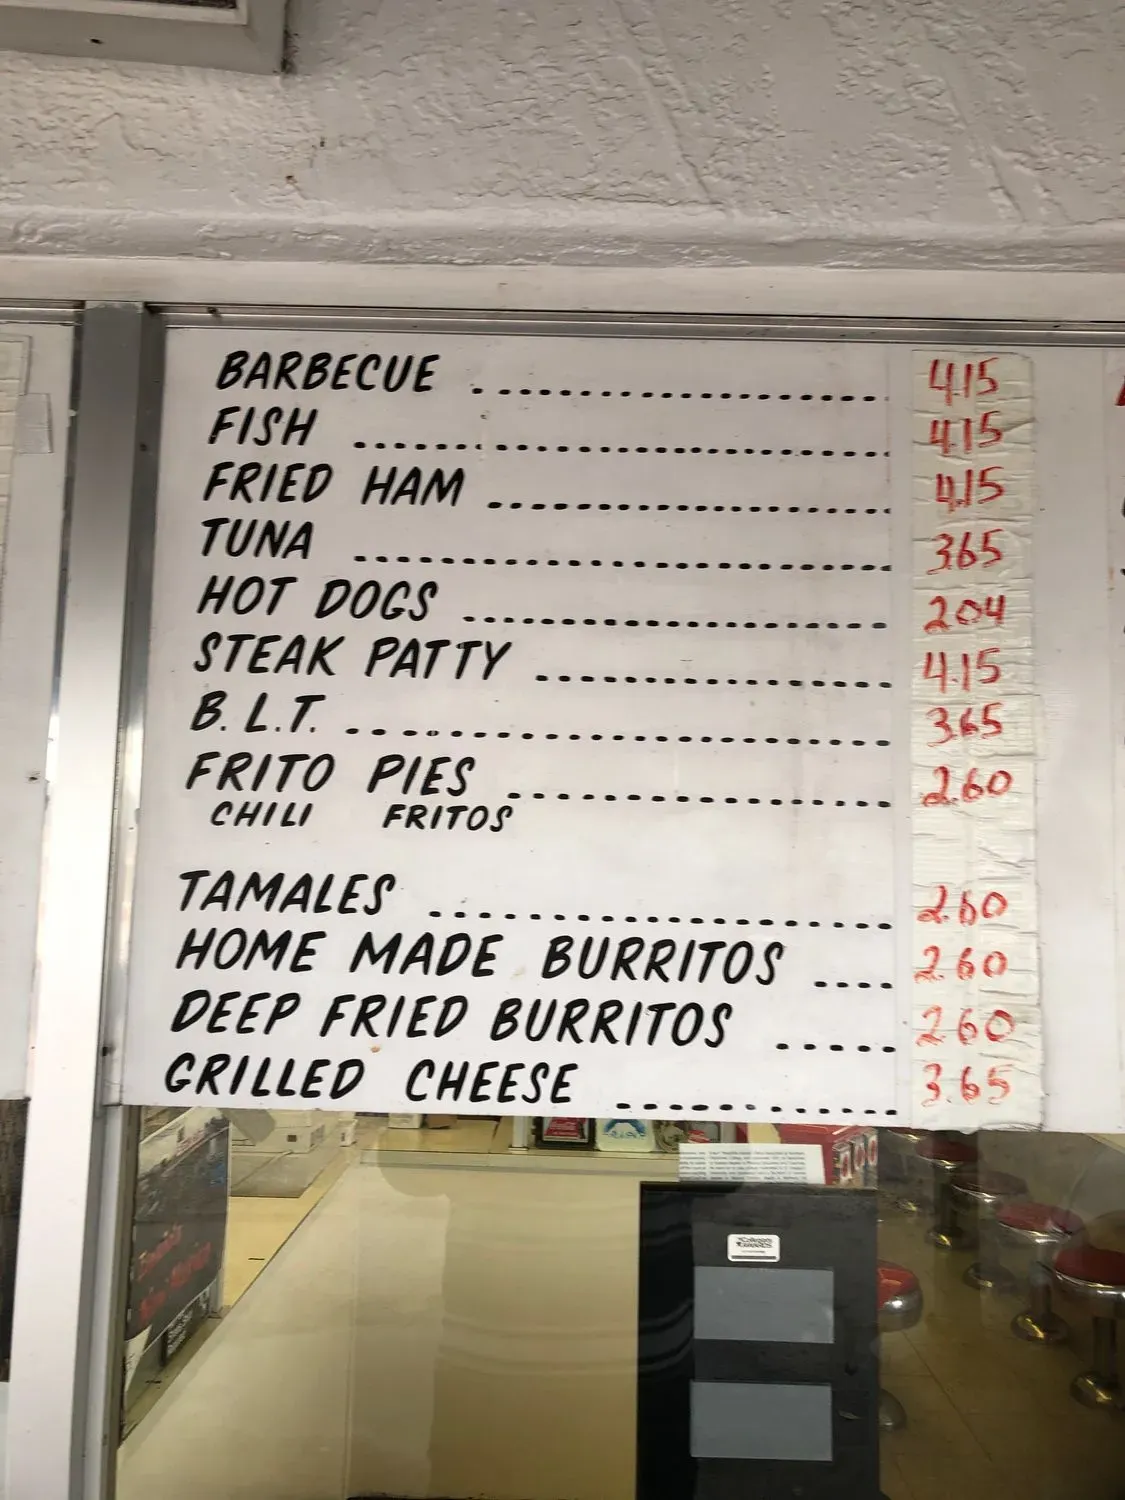 BARBECUE .................... 4.15
FISH .................... 4.15
FRIED HAM .................... 4.15
TUNA .................... 3.65
HOT DOGS .................... 2.04
STEAK PATTY .................... 4.15
B. L. T. .................... 3.65
FRITO PIES .................... 2.60
CHILI FRITOS
TAMALES .................... 2.60
HOME MADE BURRITOS .... 2.60
DEEP FRIED BURRITOS ..... 2.60
GRILLED CHEESE ........ 3.65